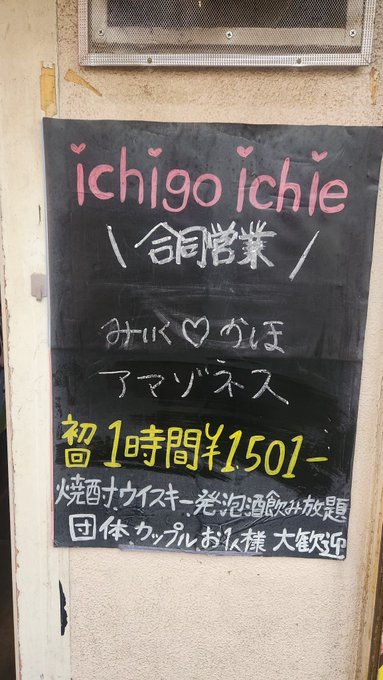 ichigo ichie
\ 合同営業 /
みいく♡かほ
アマゾネス
初回 1時間¥1501-
焼酎.ウイスキー.発泡酒飲み放題
団体.カップル.お1人様 大歓迎